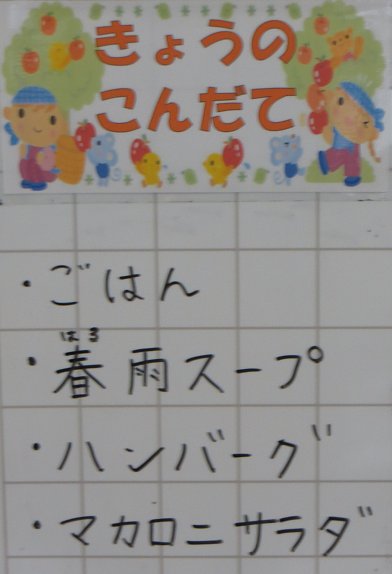 きょうの
こんだて
・ごはん
はる
・春雨スープ
・ハンバーグ
・マカロニサラダ